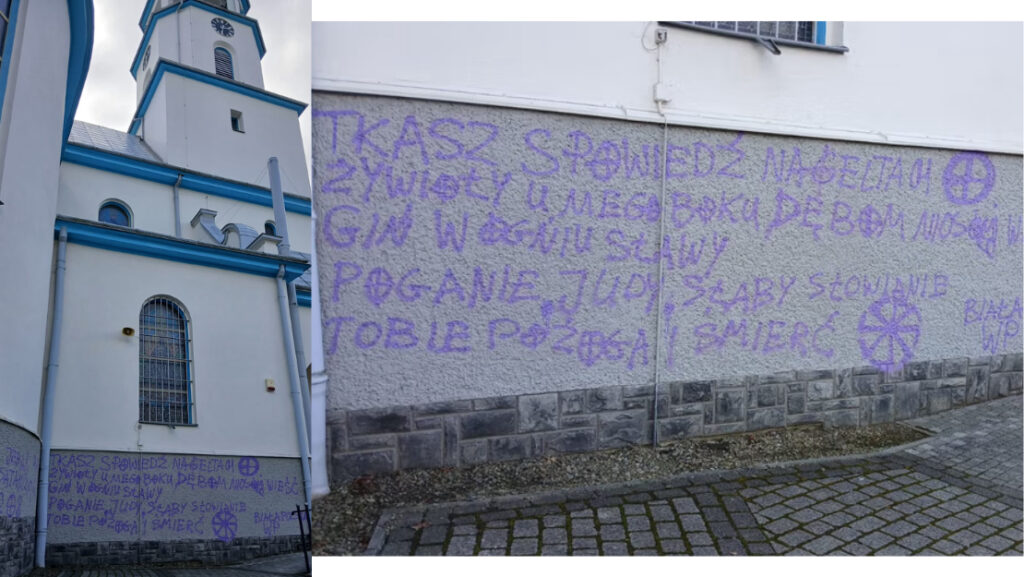 TKASZ SPOWIEDŹ NAGELTAM
ŻYWIOŁY U MEGO BOKU DĘBOM NIOSĄ WIEŚĆ
GIŃ W OGNIU SŁAWY
POGANIE, JUDY, SŁABY SŁOWIANIE
TOBIE POŻOGA I ŚMIERĆ
TKASZ SPOWIEDŹ NAGELTAM
ŻYWIOŁY U MEGO BOKU DĘBOM NIOSĄ W
GIŃ W OGNIU SŁAWY
POGANIE, JUDY, SŁABY SŁOWIANIE
TOBIE POŻOGA I ŚMIERĆ
BIAŁA
WP